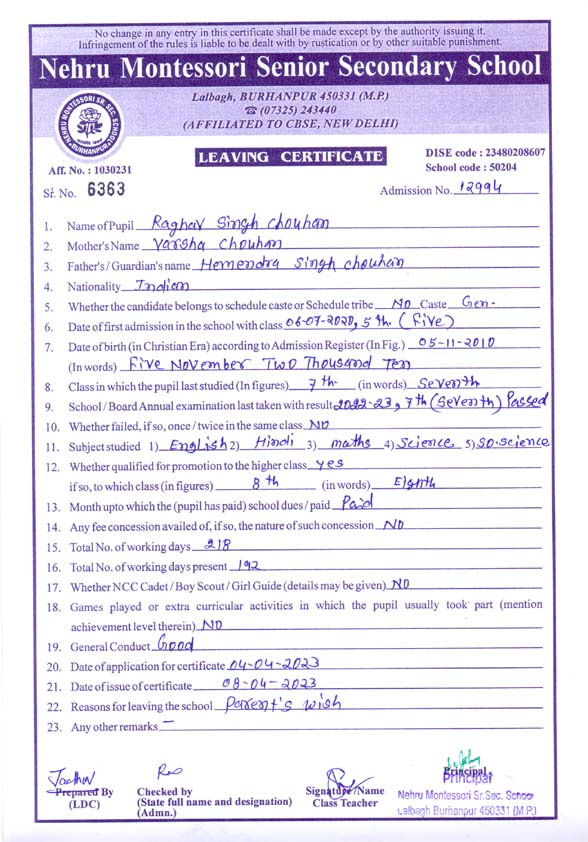 No change in any entry in this certificate shall be made except by the authority issuing it.
Infringement of the rules is liable to be dealt with by rustication or by other suitable punishment.
Nehru Montessori Senior Secondary School
Lalbagh, BURHANPUR 450331 (M.P.)
☎ (07325) 243440
(AFFILIATED TO CBSE, NEW DELHI)
NEHRU MONTESSORI SR. SEC. SCHOOL
BURHANPUR
LEAVING CERTIFICATE
DISE code : 23480208607
School code : 50204
Aff. No. : 1030231
Sr. No. 6363
Admission No. 12994
1. Name of Pupil Raghav Singh Chouhan
2. Mother's Name Varsha Chouhan
3. Father's / Guardian's name Hemendra Singh Chouhan
4. Nationality Indian
5. Whether the candidate belongs to schedule caste or Schedule tribe NO Caste Gen-
6. Date of first admission in the school with class 06-07-2020, 5th. (Five)
7. Date of birth (in Christian Era) according to Admission Register (In Fig.) 05-11-2010
(In words) Five November Two Thousand Ten
8. Class in which the pupil last studied (In figures) 7th. (in words) Seventh
9. School / Board Annual examination last taken with result 2022-23, 7th (Seventh) Passed
10. Whether failed, if so, once / twice in the same class NO
11. Subject studied 1) English 2) Hindi 3) maths 4) Science 5) SO.science
12. Whether qualified for promotion to the higher class yes
if so, to which class (in figures) 8th (in words) Eighth
13. Month upto which the (pupil has paid) school dues / paid Paid
14. Any fee concession availed of, if so, the nature of such concession NO
15. Total No. of working days 218
16. Total No. of working days present 192
17. Whether NCC Cadet / Boy Scout / Girl Guide (details may be given) NO
18. Games played or extra curricular activities in which the pupil usually took part (mention
achievement level therein) NO
19. General Conduct Good
20. Date of application for certificate 04-04-2023
21. Date of issue of certificate 08-04-2023
22. Reasons for leaving the school Parent's wish
23. Any other remarks —
Prepared By
(LDC)
Checked by
(State full name and designation)
(Admn.)
Signature/Name
Class Teacher
Principal
Principal
Nehru Montessori Sr.Sec. School
Lalbagh Burhanpur 450331 (M.P.)